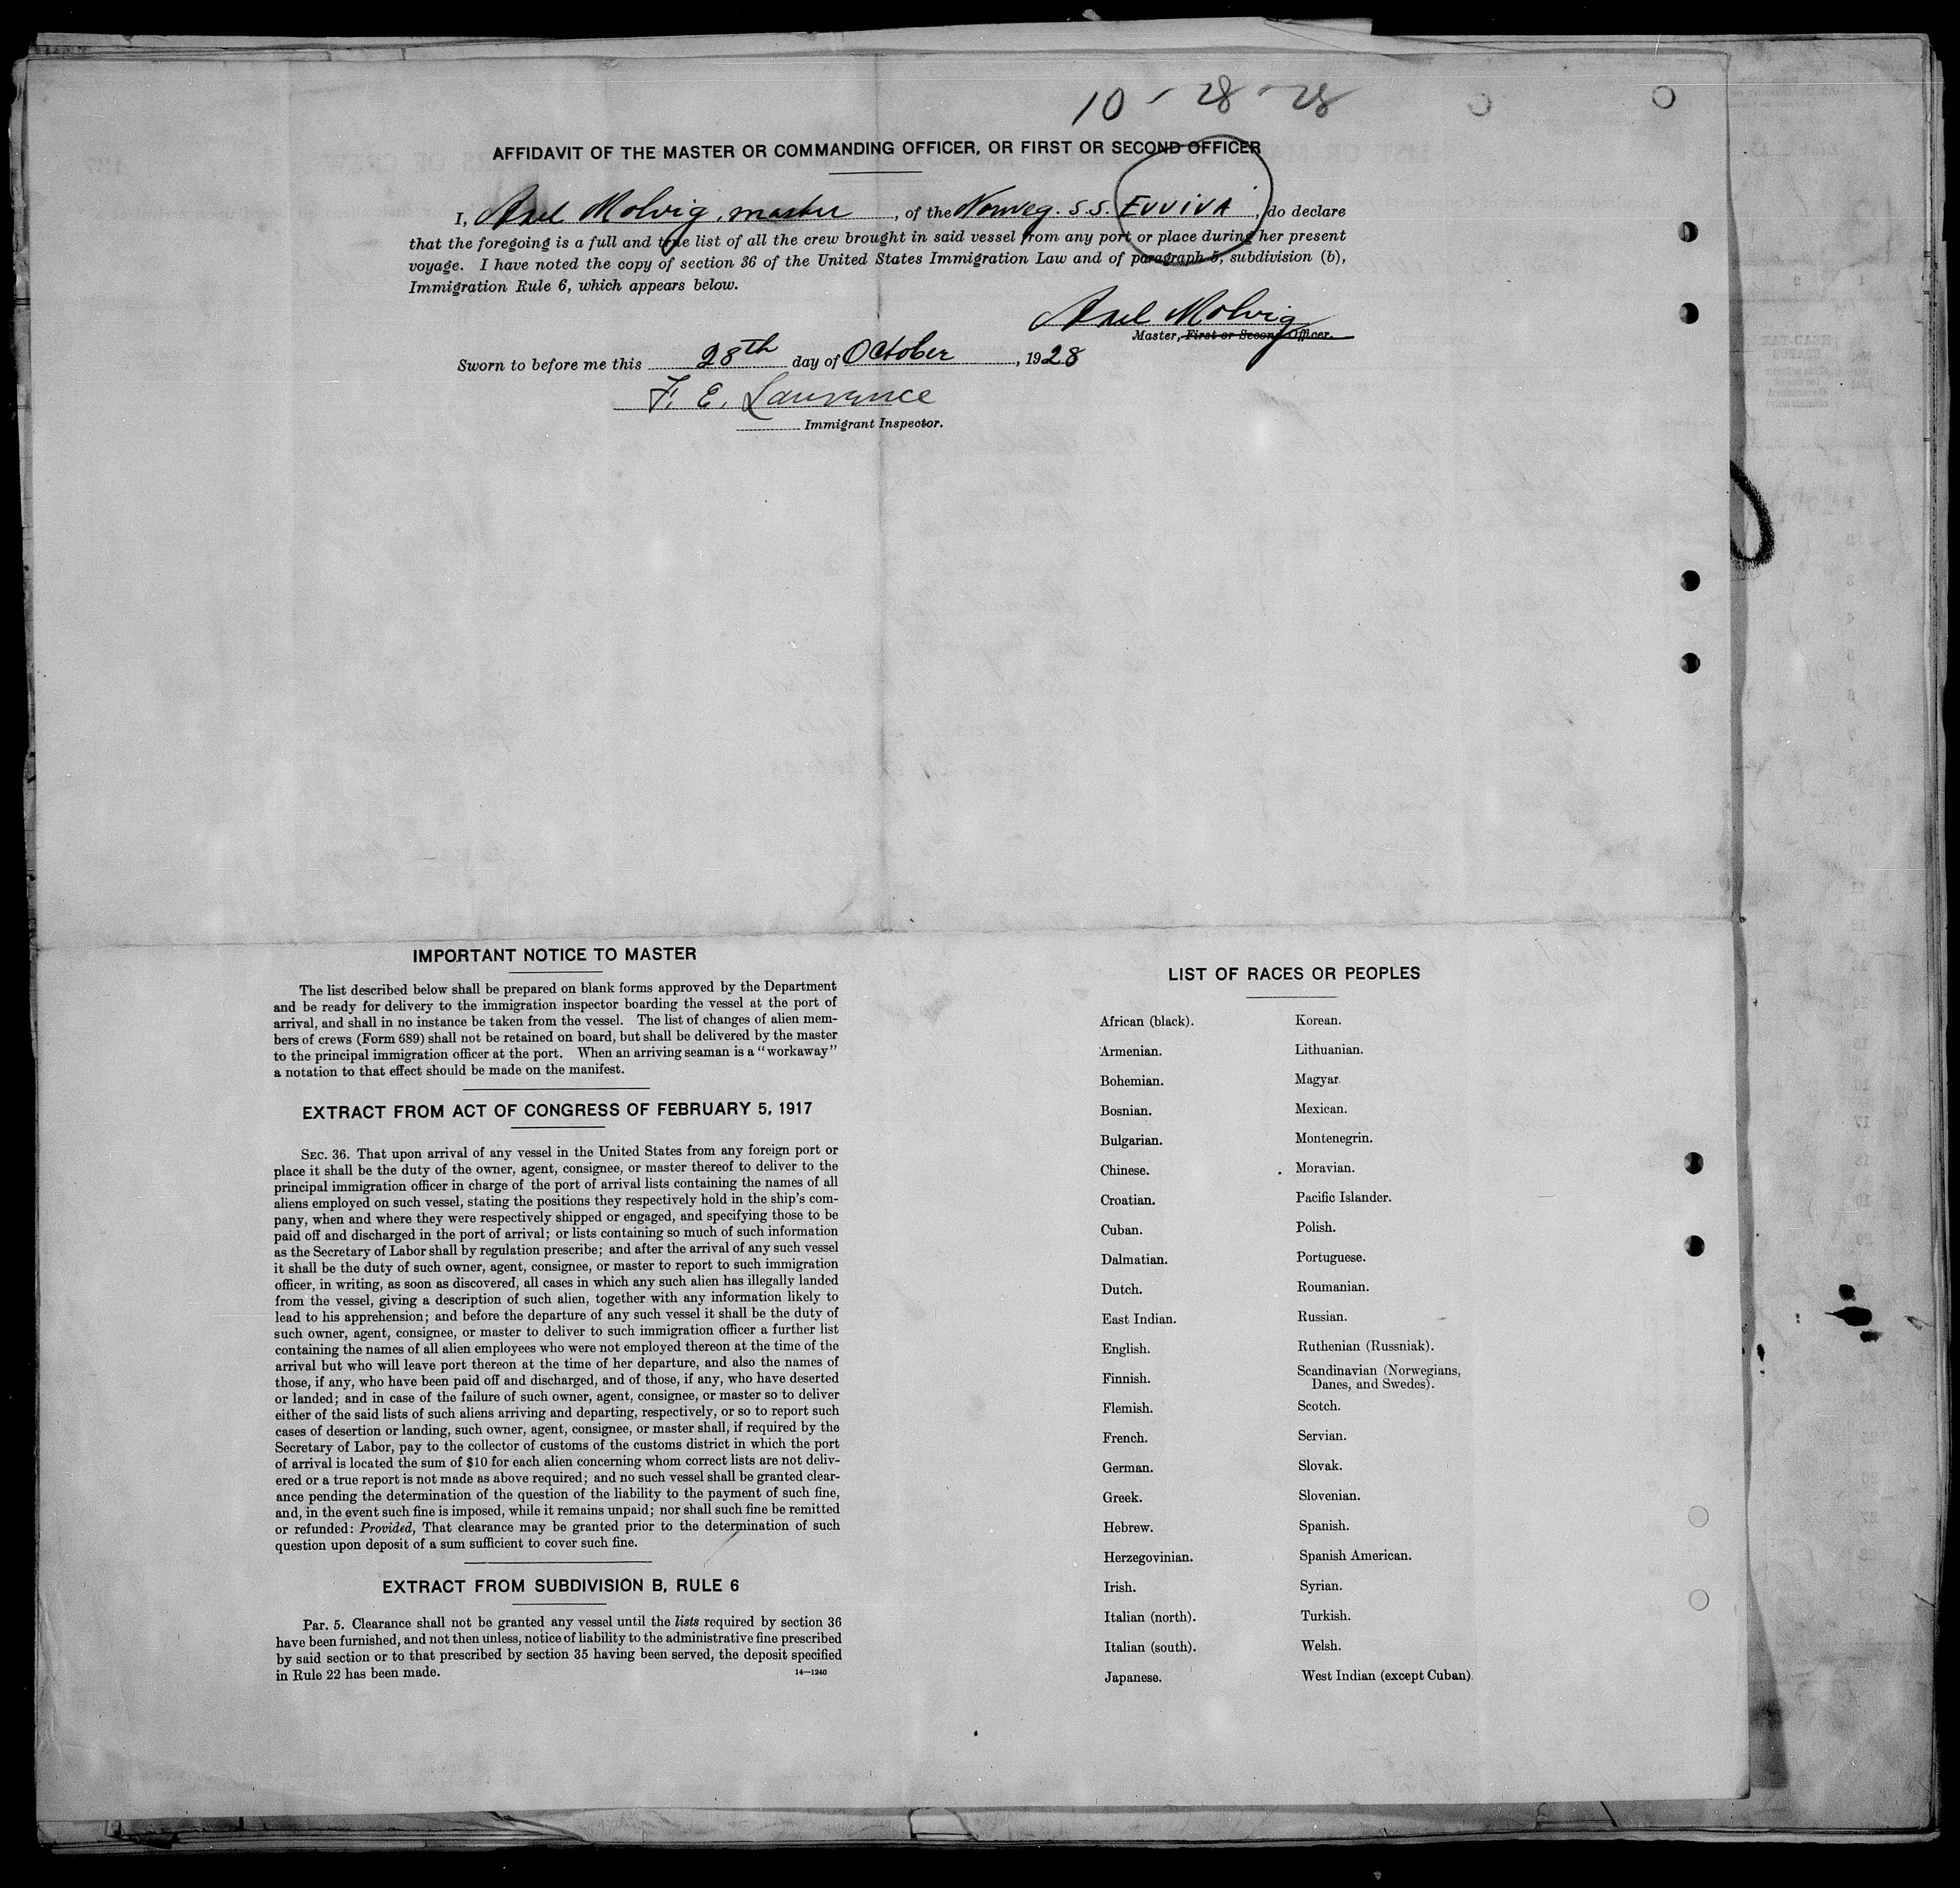 10-28-28
AFFIDAVIT OF THE MASTER OR COMMANDING OFFICER, OR FIRST OR SECOND OFFICER
I, Axel Molvig, master, of the Norweg. S.S. EVVIVA, do declare
that the foregoing is a full and true list of all the crew brought in said vessel from any port or place during her present
voyage. I have noted the copy of section 36 of the United States Immigration Law and of paragraph 5, subdivision (b),
Immigration Rule 6, which appears below.
Axel Molvig
Master, First or Second Officer.
Sworn to before me this 28th day of October, 1928
F. E. Lawrence
Immigrant Inspector.
IMPORTANT NOTICE TO MASTER
The list described below shall be prepared on blank forms approved by the Department
and be ready for delivery to the immigration inspector boarding the vessel at the port of
arrival, and shall in no instance be taken from the vessel. The list of changes of alien mem-
bers of crews (Form 689) shall not be retained on board, but shall be delivered by the master
to the principal immigration officer at the port. When an arriving seaman is a "workaway"
a notation to that effect should be made on the manifest.
EXTRACT FROM ACT OF CONGRESS OF FEBRUARY 5, 1917
SEC. 36. That upon arrival of any vessel in the United States from any foreign port or
place it shall be the duty of the owner, agent, consignee, or master thereof to deliver to the
principal immigration officer in charge of the port of arrival lists containing the names of all
aliens employed on such vessel, stating the positions they respectively hold in the ship's com-
pany, when and where they were respectively shipped or engaged, and specifying those to be
paid off and discharged in the port of arrival; or lists containing so much of such information
as the Secretary of Labor shall by regulation prescribe; and after the arrival of any such vessel
it shall be the duty of such owner, agent, consignee, or master to report to such immigration
officer, in writing, as soon as discovered, all cases in which any such alien has illegally landed
from the vessel, giving a description of such alien, together with any information likely to
lead to his apprehension; and before the departure of any such vessel it shall be the duty of
such owner, agent, consignee, or master to deliver to such immigration officer a further list
containing the names of all alien employees who were not employed thereon at the time of the
arrival but who will leave port thereon at the time of her departure, and also the names of
those, if any, who have been paid off and discharged, and of those, if any, who have deserted
or landed; and in case of the failure of such owner, agent, consignee, or master so to deliver
either of the said lists of such aliens arriving and departing, respectively, or so to report such
cases of desertion or landing, such owner, agent, consignee, or master shall, if required by the
Secretary of Labor, pay to the collector of customs of the customs district in which the port
of arrival is located the sum of $10 for each alien concerning whom correct lists are not deliv-
ered or a true report is not made as above required; and no such vessel shall be granted clear-
ance pending the determination of the question of the liability to the payment of such fine,
and, in the event such fine is imposed, while it remains unpaid; nor shall such fine be remitted
or refunded: Provided, That clearance may be granted prior to the determination of such
question upon deposit of a sum sufficient to cover such fine.
EXTRACT FROM SUBDIVISION B, RULE 6
Par. 5. Clearance shall not be granted any vessel until the lists required by section 36
have been furnished, and not then unless, notice of liability to the administrative fine prescribed
by said section or to that prescribed by section 35 having been served, the deposit specified
in Rule 22 has been made.
14—1240
LIST OF RACES OR PEOPLES
African (black).
Armenian.
Bohemian.
Bosnian.
Bulgarian.
Chinese.
Croatian.
Cuban.
Dalmatian.
Dutch.
East Indian.
English.
Finnish.
Flemish.
French.
German.
Greek.
Hebrew.
Herzegovinian.
Irish.
Italian (north).
Italian (south).
Japanese.
Korean.
Lithuanian.
Magyar.
Mexican.
Montenegrin.
Moravian.
Pacific Islander.
Polish.
Portuguese.
Roumanian.
Russian.
Ruthenian (Russniak).
Scandinavian (Norwegians,
Danes, and Swedes).
Scotch.
Servian.
Slovak.
Slovenian.
Spanish.
Spanish American.
Syrian.
Turkish.
Welsh.
West Indian (except Cuban).